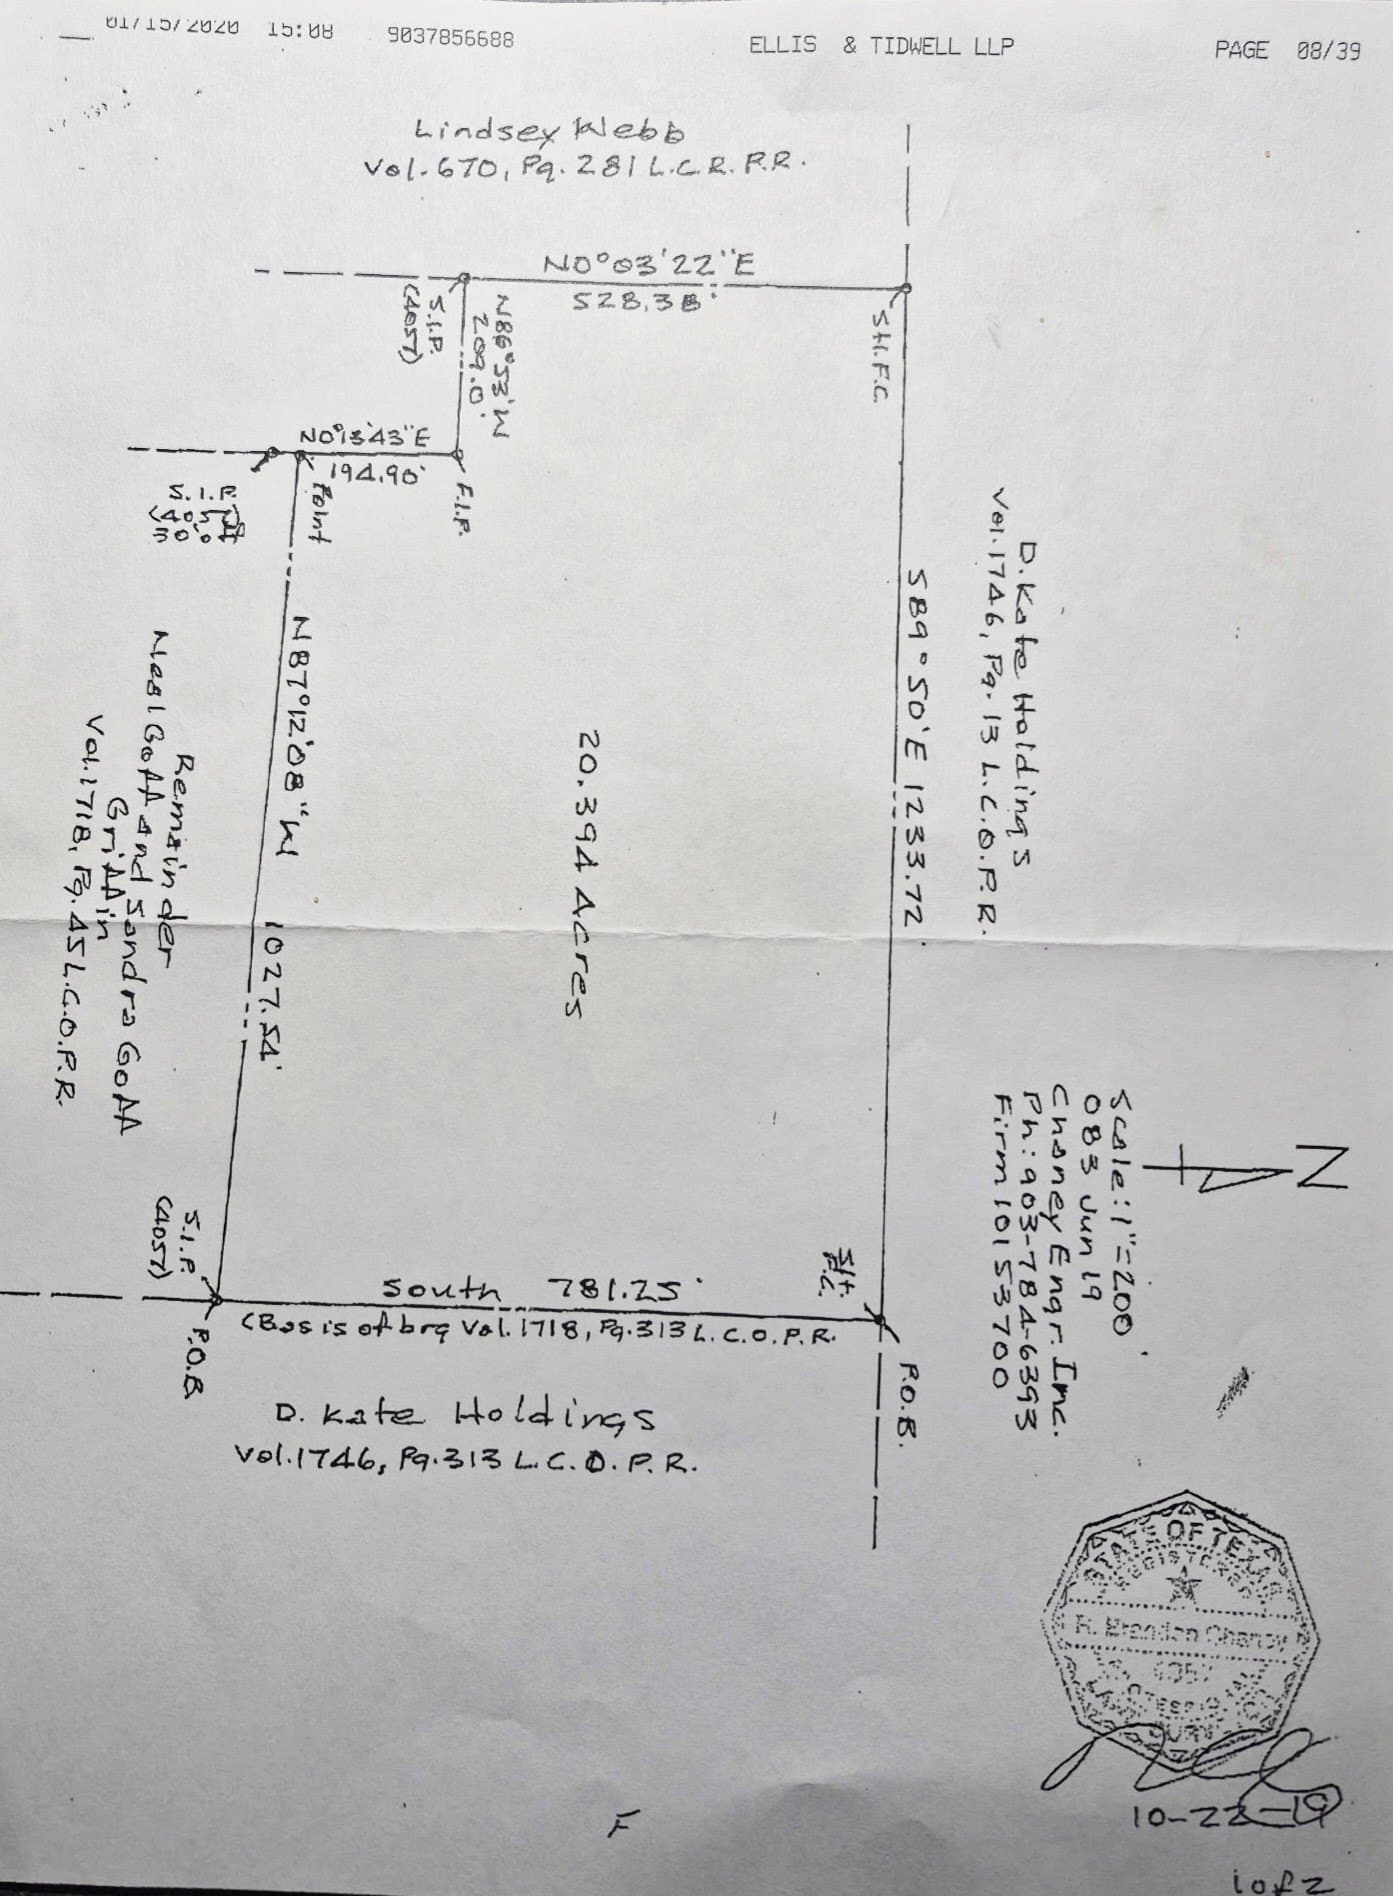 01/15/2020 15:08 9037856688 ELLIS & TIDWELL LLP PAGE 08/39
Lindsey Webb
Vol. 670, Pg. 281 L.C.R.P.R.
N0°03'22"E
528.38'
S.I.P.
(4057)
N86°53'W
209.0'
St.F.C.
N0°13'43"E
194.90'
F.I.P.
Point
S.I.P.
(4057)
S89°50'E 1233.72'
D. Kate Holdings
Vol. 1746, Pg. 13 L.C.O.P.R.
N87°12'08"W 1027.54'
20.394 Acres
Remainder
Neal Goff and Sandra Goff
Griffin
Vol. 1718, Pg. 45 L.C.O.P.R.
N
Scale: 1"=200'
083 Jun 19
Chaney Engr. Inc.
Ph: 903-784-6393
Firm 10153700
S.I.P.
(4057)
P.O.B.
South 781.25'
(Basis of brg Vol. 1718, Pg. 313 L.C.O.P.R.
St.
F.C.
P.O.B.
D. Kate Holdings
Vol. 1746, Pg. 313 L.C.O.P.R.
STATE OF TEXAS
REGISTERED
H. Brendan Chaney
4057
PROFESSIONAL
LAND SURV
10-22-19
F
1 of 2